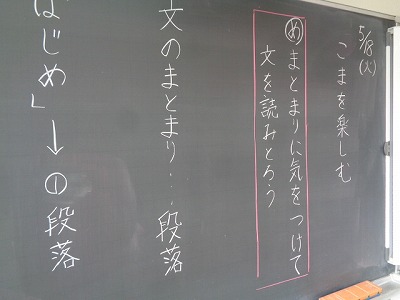 5/18(火)
こまを楽しむ
めまとまりに気をつけて
文を読みとろう
文のまとまり…段落
はじめ」→①段落